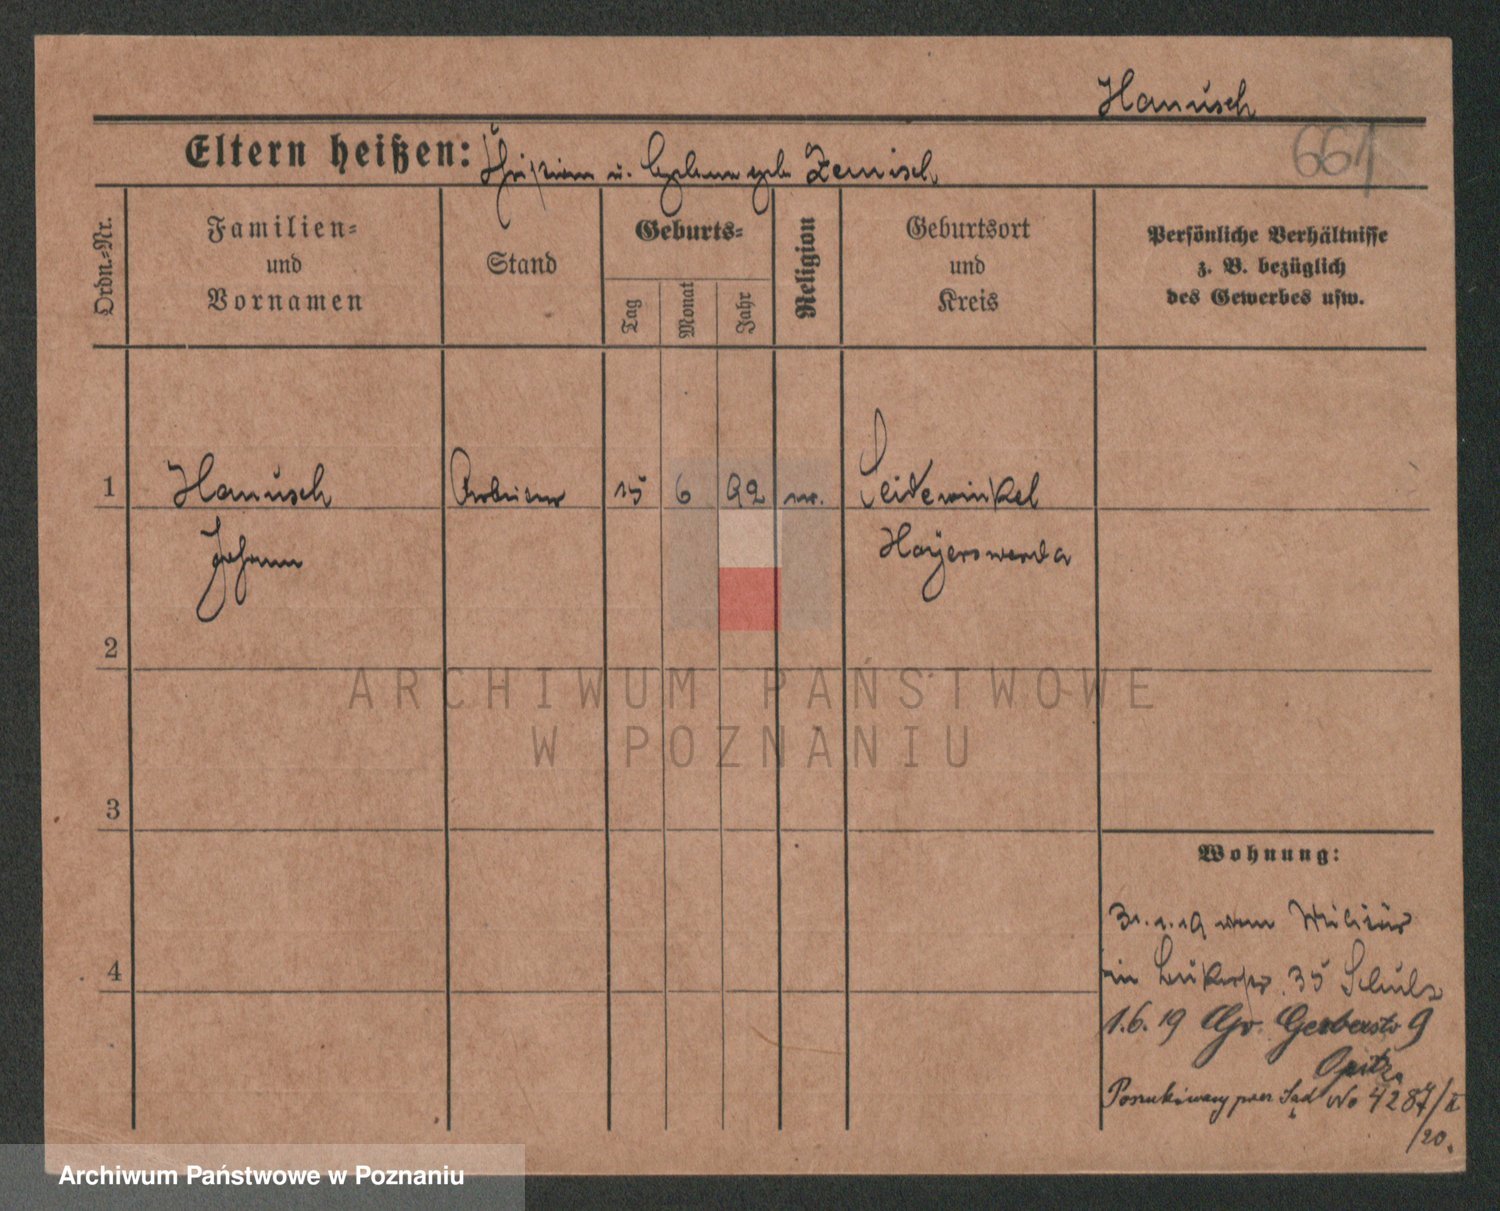 Hanusch
661
Eltern heißen: Christian u. geb. Zemisch
Ordn.-Nr.
Familien-
und
Vornamen
Stand
Geburts-
Tag
Monat
Jahr
Religion
Geburtsort
und
Kreis
Persönliche Verhältnisse
z. B. bezüglich
des Gewerbes usw.
1 Hanusch Arbeiter 15 6 92 ev. Seidewinkel
Johann Hoyerswerda
2
3
4
Wohnung:
31.1.19 vom Militär
in 35 Schulz
1.6.19 Gr. Gerberstr 9
Opitz
Poszukiwany przez Sąd No 4287/II
/20.
ARCHIWUM PAŃSTWOWE
W POZNANIU
Archiwum Państwowe w Poznaniu